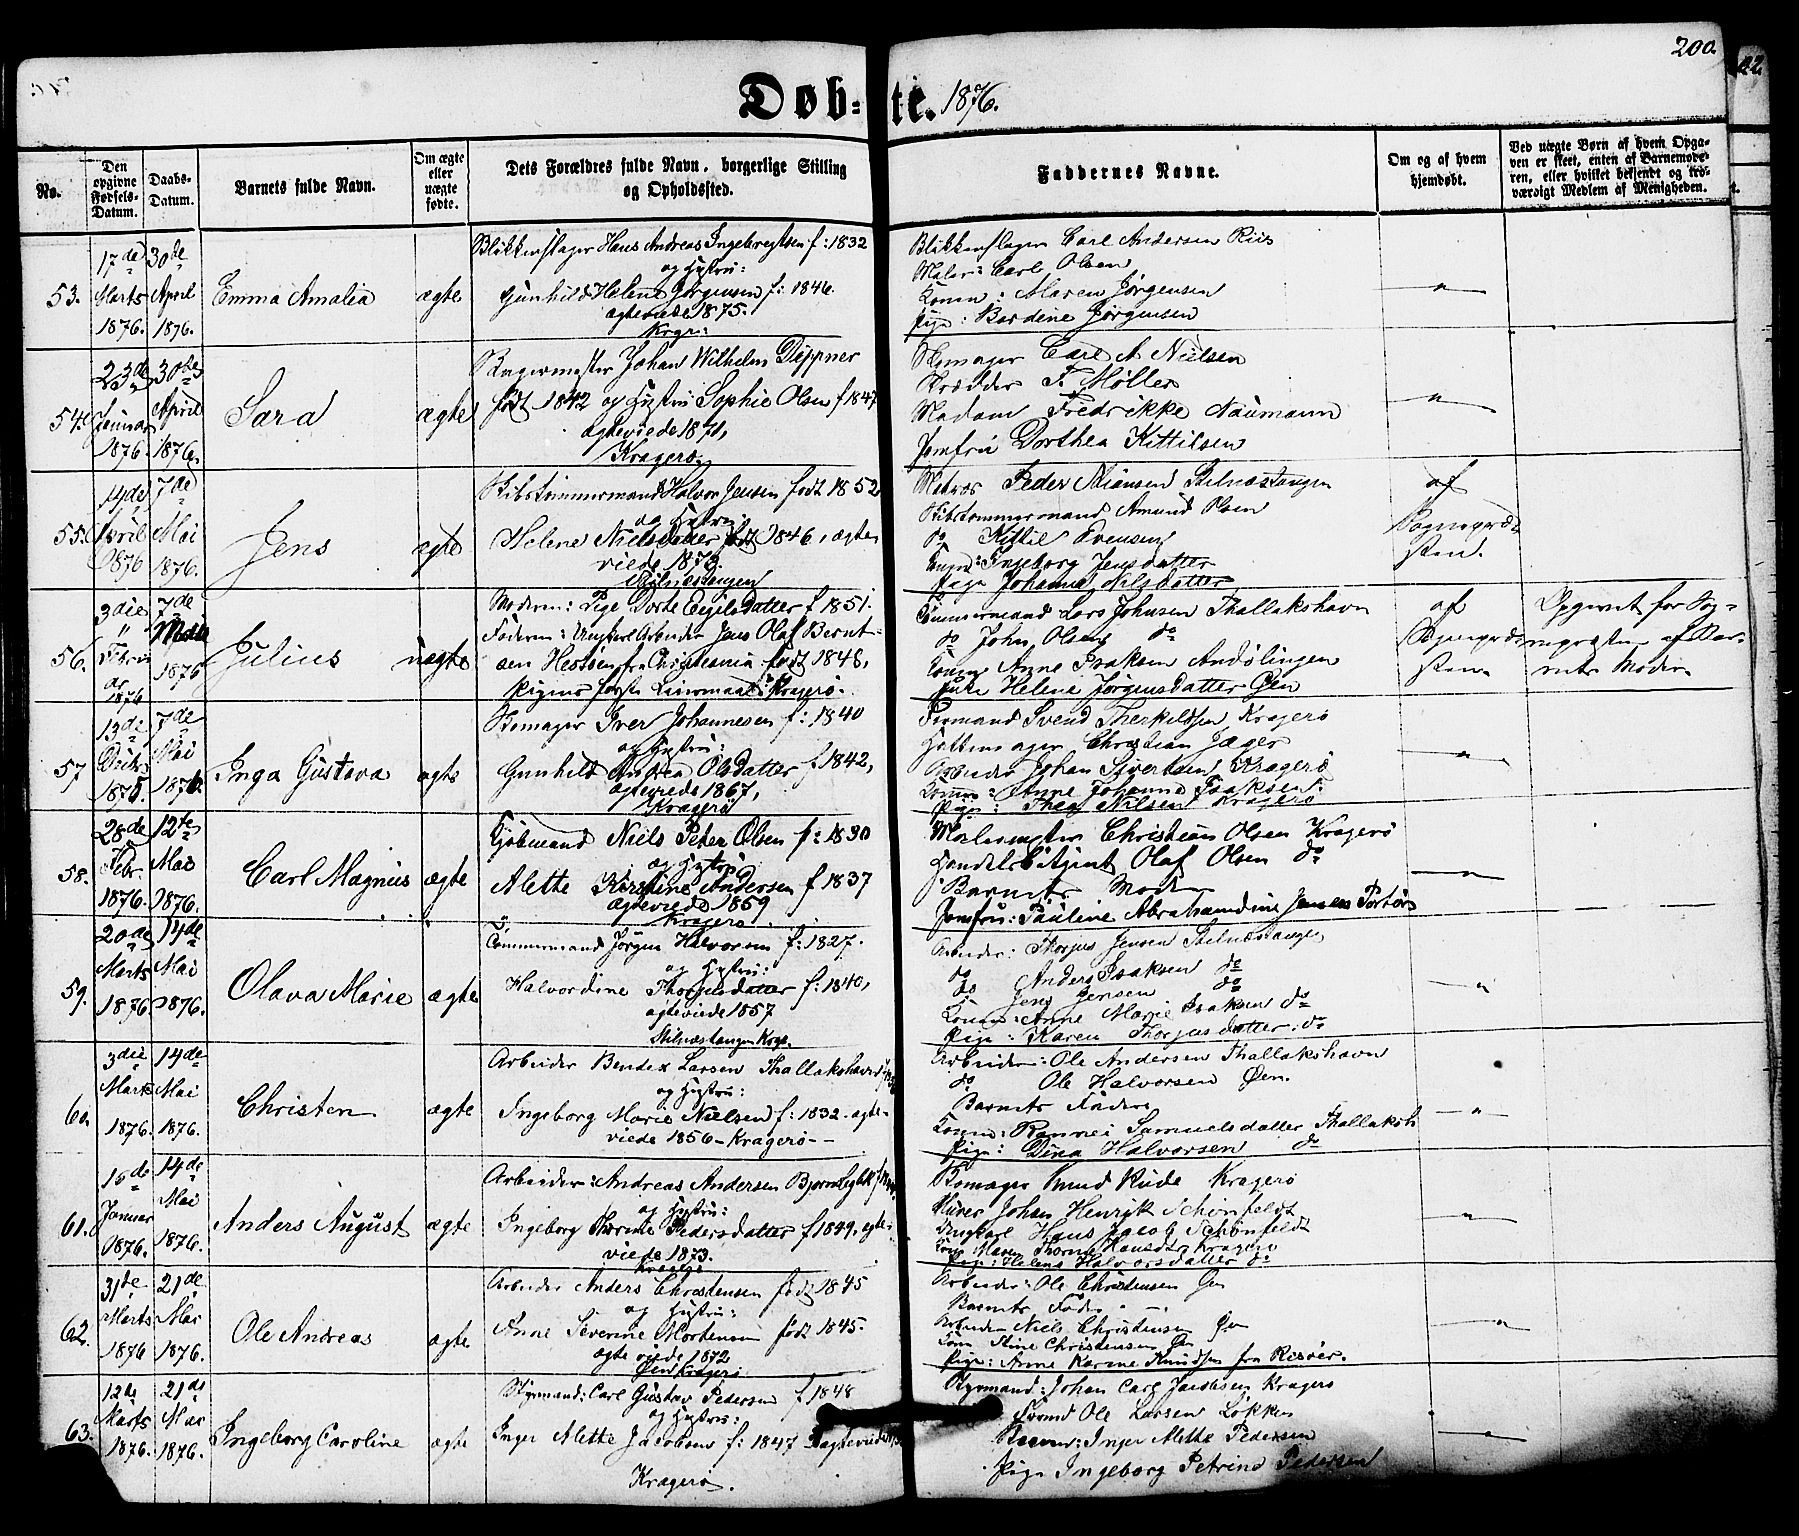 200.
Døb=te. 1876.
No.
Den opgivne Førsels-Datum.
Daabs-Datum.
Barnets fulde Navn.
Om ægte eller uægte fødte.
Dets Forældres fulde Navn, borgerlige Stilling og Opholdssted.
Faddernes Navne.
Om og af hvem hjemdøbt.
Ved uægte Børn af hvem Opgaven er skeet, enten af Barnemoderen, eller hvilket bekjendt og troværdigt Medlem af Menigheden.
53. 17de Marts 1876. 30de April 1876. Emma Amalia ægte
Blikkenslager Hans Andreas Ingebregtsen f: 1832
og Hustru:
Gunhild Helene Jørgensen f: 1846.
ægteviede 1875.
Krgr:
Blikkenslager Carl Andersen Riis
Maler: Carl Olsen
Konen: Maren Jørgensen
Pige: Bardine Jørgensen
54. 23de Januar 1876. 30de April 1876. Sara ægte
Bagermester Johan Wilhelm Dippner
født 1842 og Hustru Sophie Olsen f 1847
ægteviede 1871,
Kragerø
Skomager Carl A Nielsen
Skrædder F. Møller
Madam Fredrikke Naumann
Jomfru Dorthea Kittilsen
55. 14de April 1876 7de Mai 1876. Jens ægte
Skibstømmermand Halvor Jensen født 1852
og Hustru:
Helene Nielsdatter født 1846, ægte-
viede 1873.
Stilnæstangen
Matros Peder Stilnæstangen
Skibstømmermand Amund Olsen
do Kittil Evensen
Konen: Ingeborg Jensdatter
Pige Johanne Nilsdatter
af
Sognepræ-
sten.
56. 3die Februar 1876 7de 1876 Julius uægte
Moderen: Pige Dorte Eigilsdatter f 1851.
Faderen: Ungkarl Arbeider Jens Olaf Bernt-
sen Hestøen fra Christiania født 1848,
Pigens første Leiermaal: Kragerø.
Tømmermand Lars Johnsen Thallakshavn
do John Olsen do
Konen Anne Isaksen Andølingen
Pige Helene Jørgensdatter Øen
af
Sognepræ-
sten.
Opgivet for Sog-
nepræsten af Bar-
nets Moder.
57 13de 1875. 7de Mai 1876. Inga Gustava ægte
Skomager Iver Johannesen f: 1840
og Hustru:
Gunhild Andrea Olsdatter f 1842,
ægteviede 1867,
Kragerø
Formand Svend Therkildsen Kragerø
Hattemager Christian Jæger
Arbeider Johan Sivertsen Kragerø
Konen: Anne Johanne Isaksen
Pige: Thea Nilsen Kragerø
58. 28de Febr. 1876. 12te Mai 1876. Carl Magnus ægte
Kjøbmand Niels Peter Olsen f: 1830
og Hustru
Alette Kirstine Andersen f 1837
ægteviede 1859
Kragerø
Malermester Christian Olsen Kragerø
Handels Agent Olaf Olsen do
Barnets Moder
Jomfru: Pauline Abrahamdine Jensen Portør
59. 20de Marts 1876. 14de Mai 1876. Olava Marie ægte
Tømmermand Jørgen Halvorsen f: 1827.
og Hustru:
Halvordine Thorjusdatter f: 1840,
ægteviede 1857
Stilnæstangen Krgr.
Arbeider: Thorjus Jensen Stilnæstangen
do Anders Isaksen do
do Jens Jensen do
Konen: Anne Marie Isaksen do
Pige: Karen Thorjusdatter: do
60. 3die Marts 1876. 14de Mai 1876. Christen ægte
Arbeider Bendix Larsen Thallakshavn
og Hustru:
Ingeborg Marie Nielsen f: 1832 - ægte-
viede 1856 - Kragerø -
Arbeider: Ole Andersen Thallakshavn
do Ole Halvorsen Øen.
Barnets Fader
Konen: Rannei Samuelsdatter Thallaksh
Pige: Dina Halvorsen do
61. 16de Januar 1876. 14de Mai 1876. Anders August ægte
Arbeider: Andreas Andersen
og Hustru:
Ingeborg Thorine Pedersdatter f 1849, ægte-
viede 1873.
Kragerø
Skomager Knud Riide Kragerø
Johan Henrik Schønfeldt
Ungkarl Hans Jacob Schønfeldt
Kone Maren Thorine Hansdtr Kragerø
Pige: Helene Halvorsdatter do
62. 31te Marts 1876 21de Mai 1876. Ole Andreas ægte
Arbeider Anders Christensen født 1845
og Hustru:
Anne Severine Mortensen født 1845.
ægteviede 1872
Øen Kragerø
Arbeider: Ole Christensen Øen
Barnets Fader - -
Arbeider Niels Christensen Øen
Kone Stine Christensen Øen
Pige: Anne Karine Knudsen fra Risøer.
63. 12de Marts 1876. 21de Mai 1876. Ingeborg Caroline ægte
Styrmand: Carl Gustav Pedersen f 1848
og Hustru:
Inger Alette Jacobsen f: 1847 ægteviede
Kragerø.
Styrmand: Johan Carl Jacobsen Kragerø
Ole Larsen Løkken
Inger Alette Pedersen
Pige Ingeborg Petrine Pedersen